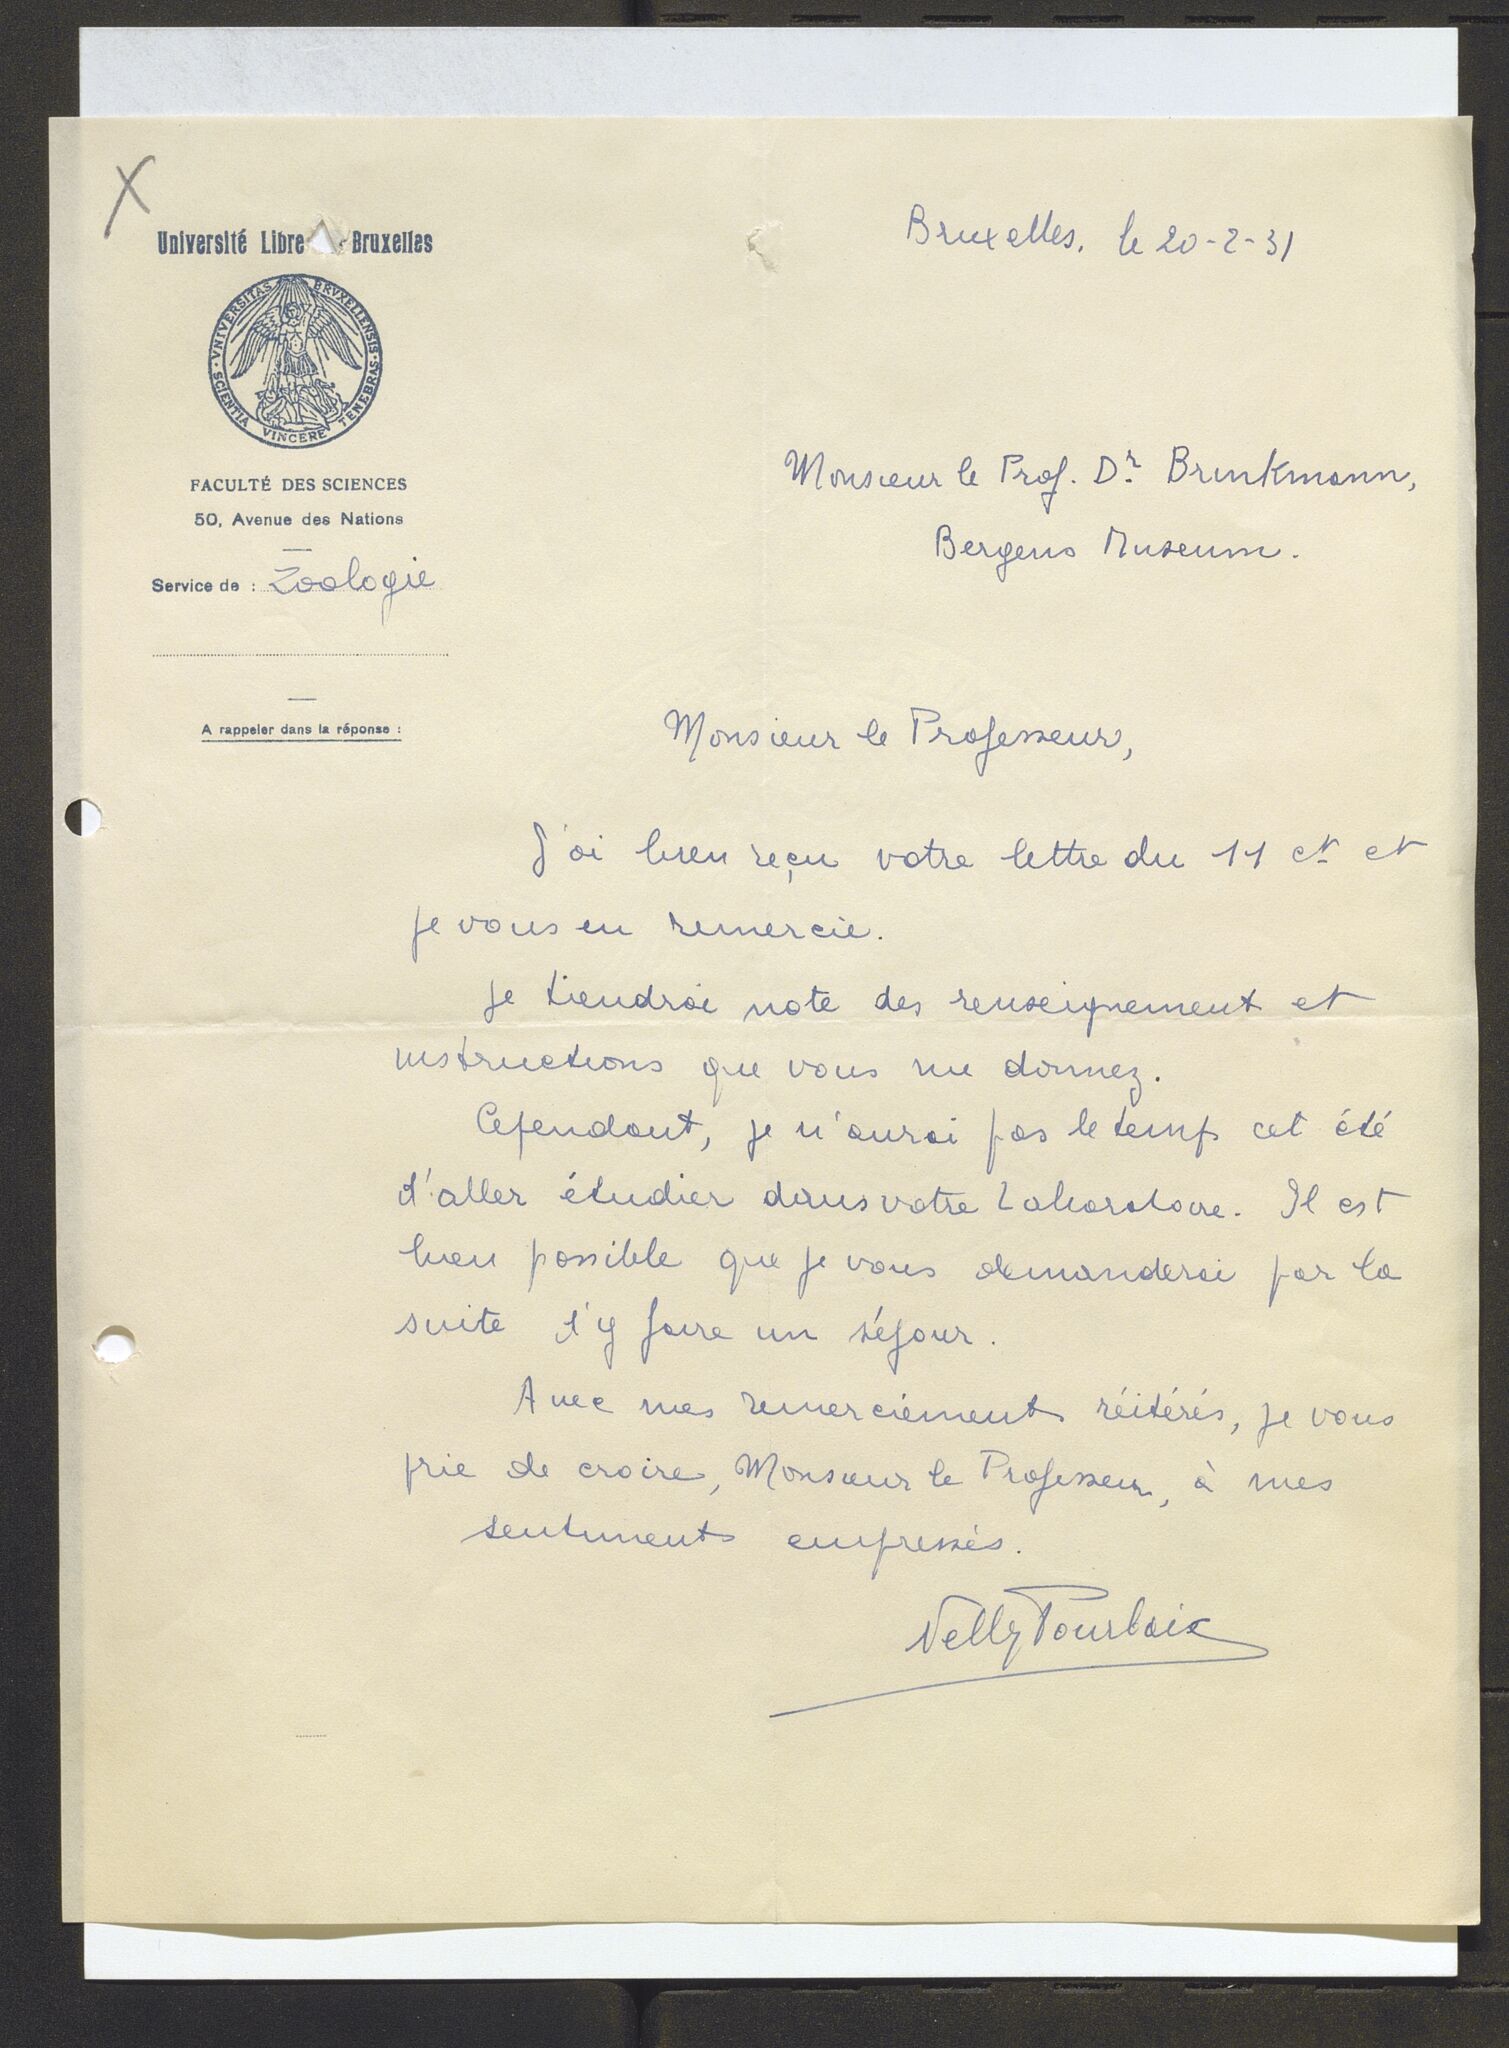 X
Université Libre Bruxelles
VNIVERSITAS BRVXELLENSIS
SCIENTIA VINCERE TENEBRAS
FACULTÉ DES SCIENCES
50, Avenue des Nations
Service de : Zoologie
A rappeler dans la réponse :
Bruxelles, le 20-2-31
Monsieur le Prof. Dr Brinkmann,
Bergens Museum.
Monsieur le Professeur,
J'ai bien reçu votre lettre du 11 ct et
je vous en remercie.
Je tiendrai note des renseignement et
instructions que vous me donnez.
Cependant, je n'aurai pas le temps cet été
d'aller étudier dans votre Laboratoire. Il est
bien possible que je vous demanderai par la
suite d'y faire un séjour.
Avec mes remerciements réitérés, je vous
prie de croire, Monsieur le Professeur, à mes
sentiments empressés.
Nelly Pourbaix